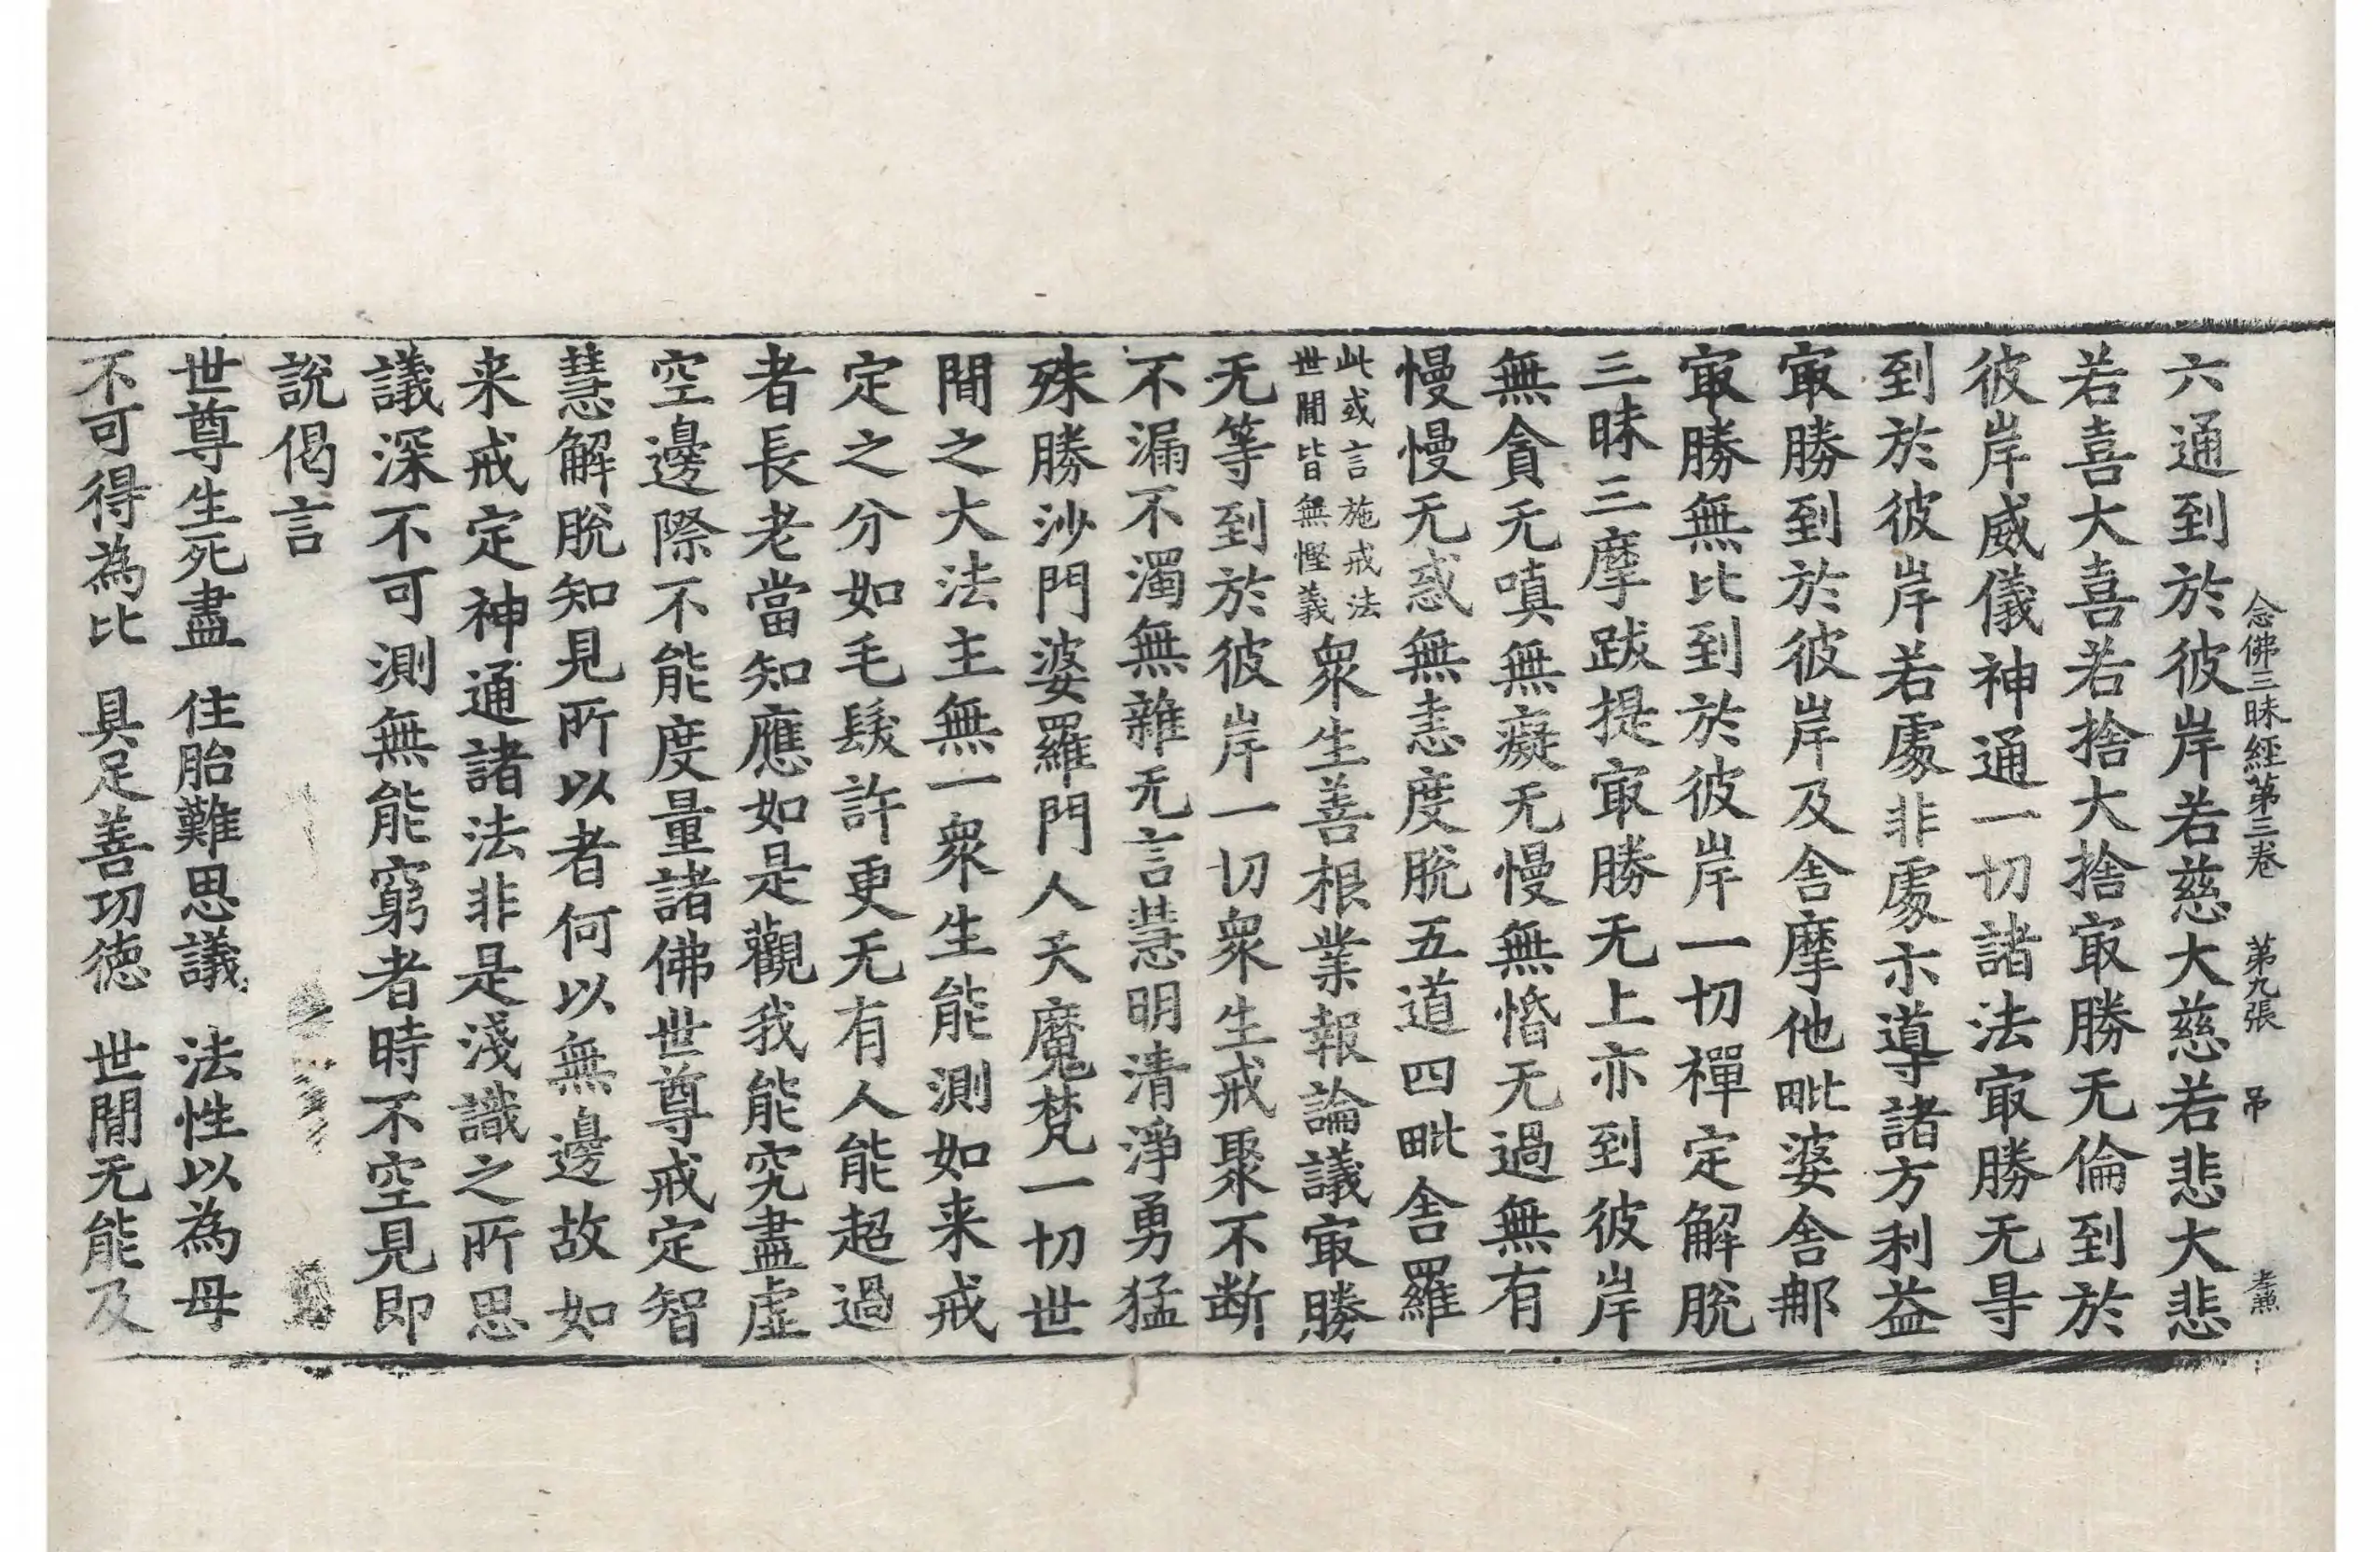 念佛三昧經第三卷　第九張　吊　
六通到於彼岸若慈大慈若悲大悲
若喜大喜若捨大捨㝡勝无倫到於
彼岸威儀神通一切諸法㝡勝无㝵
到於彼岸若處非處示導諸方利益
㝡勝到於彼岸及舎摩他毗婆舎那
㝡勝無比到於彼岸一切禪定解脫
三昧三摩跋提㝡勝无上亦到彼岸
無貪无嗔無癡无慢無惛无過無有
慢慢无惑無恚度脫五道四毗舎羅
此或言施戒法
世間皆無慳義
衆生善根業報論議㝡勝
无等到於彼岸一切衆生戒聚不断
不漏不濁無雜无言慧明清淨勇猛
殊勝沙門婆羅門人天魔梵一切世
間之大法主無一衆生能測如来戒
定之分如毛髮許更无有人能超過
者長老當知應如是觀我能究盡虛
空邊際不能度量諸佛世尊戒定智
慧解脫知見所以者何以無邊故如
来戒定神通諸法非是淺識之所思
議深不可測無能窮者時不空見即
說偈言
世尊生死盡　住胎難思議　法性以為母
不可得為比　具足善功徳　世間无能及